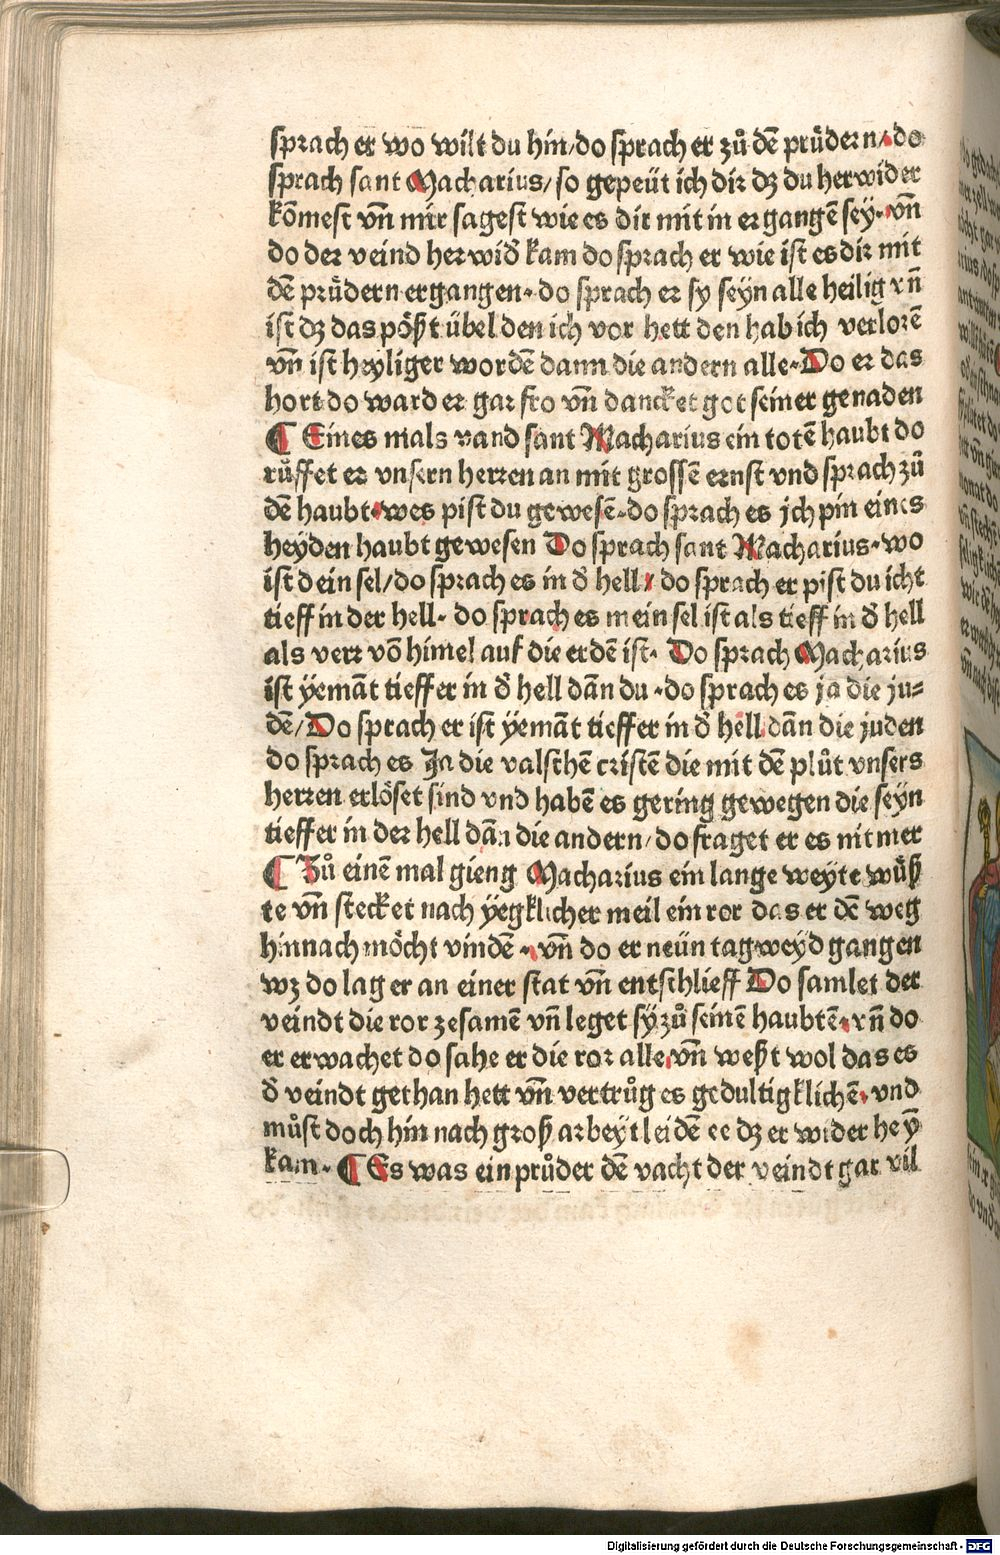 sprach er wo wilt du hin/do sprach er zů dē prüdern/do
sprach sant Macharius/so gepeüt ich dir dz du her wider
kōmest vn̄ mir sagest wie es dir mit in ergangē sey·vn̄
do der veind her wid̄ kam do sprach er wie ist es dir mit
dē prüdern ergangen·do sprach er sy seyn alle heilig vn̄
ist dz das pößt übel den ich vor hett den hab ich verlorē
vn̄ ist heyliger wordē dann die andern alle·Do er das
hort do ward er gar fro vn̄ dancket got seiner genaden
¶ Eines mals vand sant Macharius ein totē haubt do
růffet er vnsern herren an mit grossē ernst vnd sprach zů
dē haubt·wes pist du gewesē·do sprach es jch pin eines
heyden haubt gewesen Do sprach sant Macharius·wo
ist dein sel/do sprach es in d̄ hell/do sprach er pist du icht
tieff in der hell·do sprach es mein sel ist als tieff in d̄ hell
als verr vō himel auf die erdē ist·Do sprach Macharius
ist yemāt tieffer in d̄ hell dān du·do sprach es ja die ju⸗
dē/Do sprach er ist yemāt tieffer in d̄ hell dān die juden
do sprach es Ja die valschē cristē die mit dē plůt vnsers
herren erlöset sind vnd habē es gering gewegen die seyn
tieffer in der hell dān die andern/do fraget er es nit mer
¶ Zů einē mal gieng Macharius ein lange weyte wüß
te vn̄ stecket nach yegklicher meil ein ror das er dē weg
hin nach möcht vindē·vn̄ do er neün tagweyd gangen
wz do lag er an einer stat vn̄ entschlieff Do samlet der
veindt die ror zesamē vn̄ leget sy zů seinē haubtē·vn̄ do
er erwachet do sahe er die ror alle·vn̄ weßt wol das es
d̄ veindt gethan hett vn̄ vertrůg es gedultigklichē·vnd
můst doch hin nach groß arbeyt leidē ee dz er wider heȳ
kam·¶ Es was ein průder dē vacht der veindt gar vil
Digitalisierung gefördert durch die Deutsche Forschungsgemeinschaft - DFG